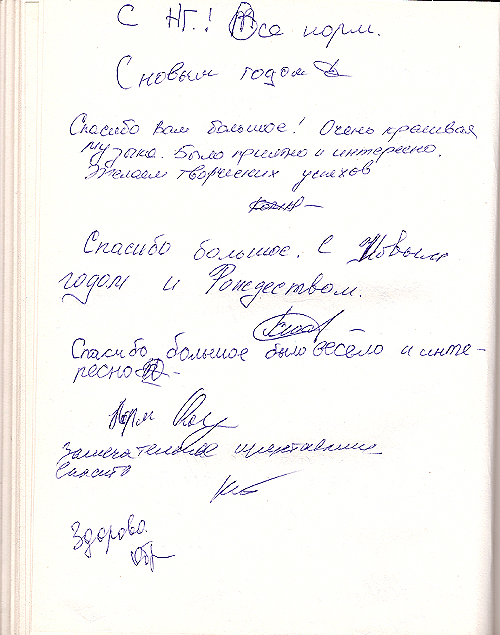 С НГ.! Все норм.
С новым годом
Спасибо Вам большое! Очень красивая
музыка. Было приятно и интересно.
Желаем творческих успехов
Спасибо большое. С Новым
годом и Рождеством.
Спасибо большое было весело и инте-
ресно
Норм
Замечательное представление
Спасибо
Здорово.